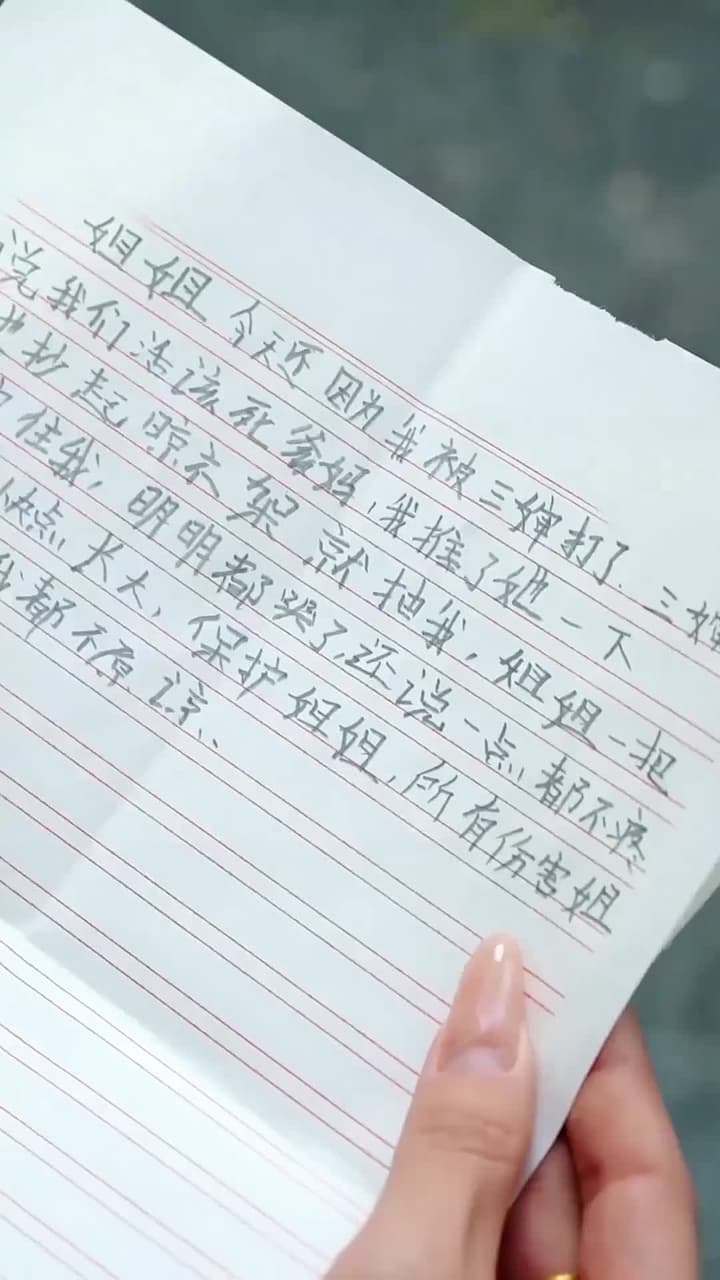 姐姐今天还因为我被三婶打了.三婶
说我们活该死爸妈,我推了她一下
抄起晾衣架就抽我,姐姐一把
住我,明明都哭了,还说一点都不疼
快点长大,保护姐姐,所有伤害姐
我都不原谅.